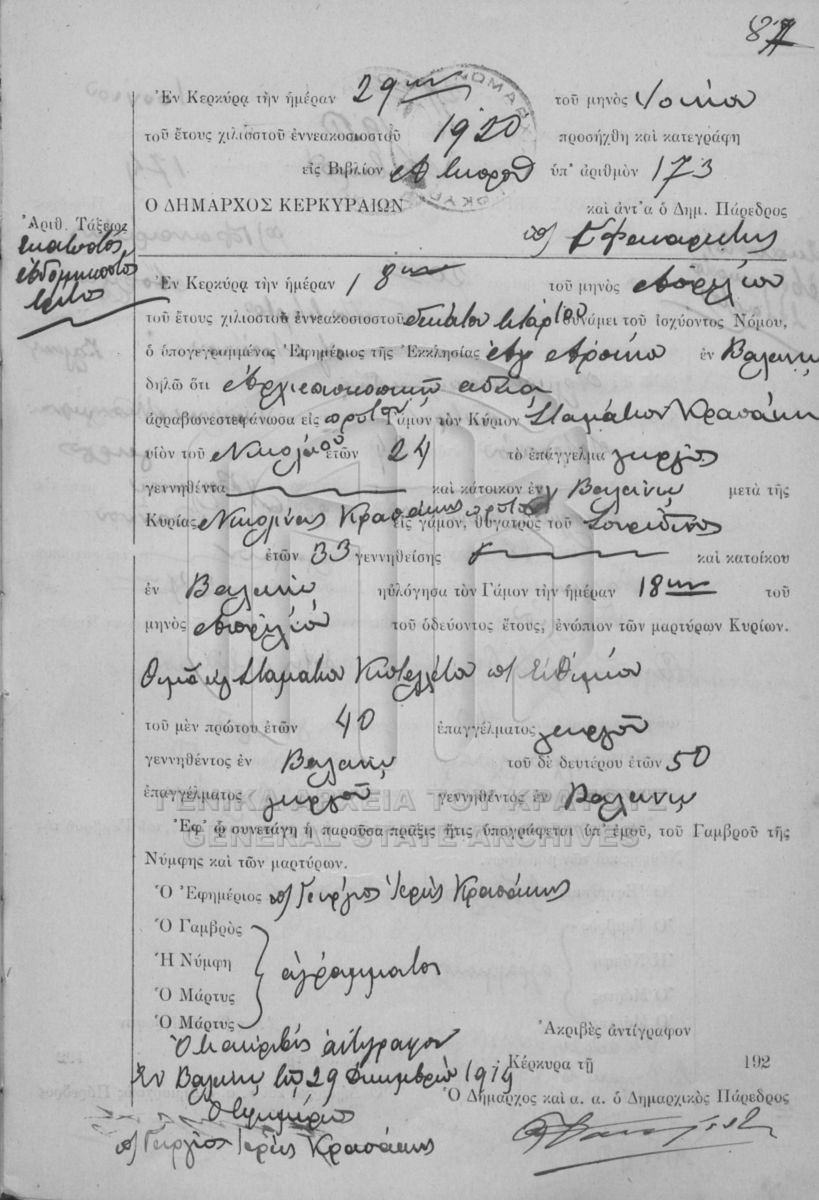 87
Ἐν Κερκύρᾳ τὴν ἡμέραν 29ην τοῦ μηνὸς
τοῦ ἔτους χιλιοστοῦ ἐννεακοσιοστοῦ 1920 προσήχθη καὶ κατεγράφη
εἰς Βιβλίον ὑπ' ἀριθμὸν 173
Ο ΔΗΜΑΡΧΟΣ ΚΕΡΚΥΡΑΙΩΝ καὶ ἀντ'α ὁ Δημ. Πάρεδρος
Ἀριθ. Τάξεως
ἑκατοστὸς
ἑβδομηκοστὸς
τρίτος
Ἐν Κερκύρᾳ τὴν ἡμέραν 18ην τοῦ μηνὸς Ἀπριλίου
τοῦ ἔτους χιλιοστοῦ ἐννεακοσιοστοῦ δεκάτου τετάρτου δυνάμει τοῦ ἰσχύοντος Νόμου,
ὁ ὑπογεγραμμένος Ἐφημέριος τῆς Ἐκκλησίας ἐν Βαλανιῷ
δηλῶ ὅτι Ἀρχιεπισκοπικῇ ἀδείᾳ
ἀρραβωνεστεφάνωσα εἰς πρῶτον Γάμον τὸν Κύριον Σταμάτιον Κρασάκη
υἱὸν τοῦ Νικολάου ἐτῶν 24 τὸ ἐπάγγελμα γεωργὸς
γεννηθέντα καὶ κάτοικον ἐν Βαλανιῷ μετὰ τῆς
Κυρίας Νικολίνας Κρασάκης πρῶτον εἰς γάμον, θυγατρὸς τοῦ Σπυρίδωνος
ἐτῶν 33 γεννηθείσης καὶ κατοίκου
ἐν Βαλανιῷ ηὐλόγησα τὸν Γάμον τὴν ἡμέραν 18ην τοῦ
μηνὸς Ἀπριλίου τοῦ ὁδεύοντος ἔτους, ἐνώπιον τῶν μαρτύρων Κυρίων.
Θωμᾶ Σταματίου Εὐθυμίου
τοῦ μὲν πρώτου ἐτῶν 40 ἐπαγγέλματος γεωργοῦ
γεννηθέντος ἐν Βαλανιῷ τοῦ δὲ δευτέρου ἐτῶν 50
ἐπαγγέλματος γεωργοῦ γεννηθέντος ἐν Βαλανιῷ
ΓΕΝΙΚΑ ΑΡΧΕΙΑ ΤΟΥ ΚΡΑΤΟΥΣ
GENERAL STATE ARCHIVES
Ἐφ' ᾧ συνετάγη ἡ παροῦσα πρᾶξις ἥτις ὑπογράφεται ὑπ' ἐμοῦ, τοῦ Γαμβροῦ τῆς
Νύμφης καὶ τῶν μαρτύρων.
Ὁ Ἐφημέριος π/ Γεώργιος Ἱερεὺς Κρασάκης
Ὁ Γαμβρὸς
Ἡ Νύμφη ἀγράμματοι
Ὁ Μάρτυς
Ὁ Μάρτυς
Ἀκριβὲς ἀντίγραφον
ἀκριβὲς ἀντίγραφον
Κέρκυρα τῇ 192
Ἐν Βαλανιῷ τῇ 29 1914
Ὁ Δήμαρχος καὶ α. α. ὁ Δημαρχικὸς Πάρεδρος
Ὁ Ἐφημέριος
π/ Γεώργιος Ἱερεὺς Κρασάκης